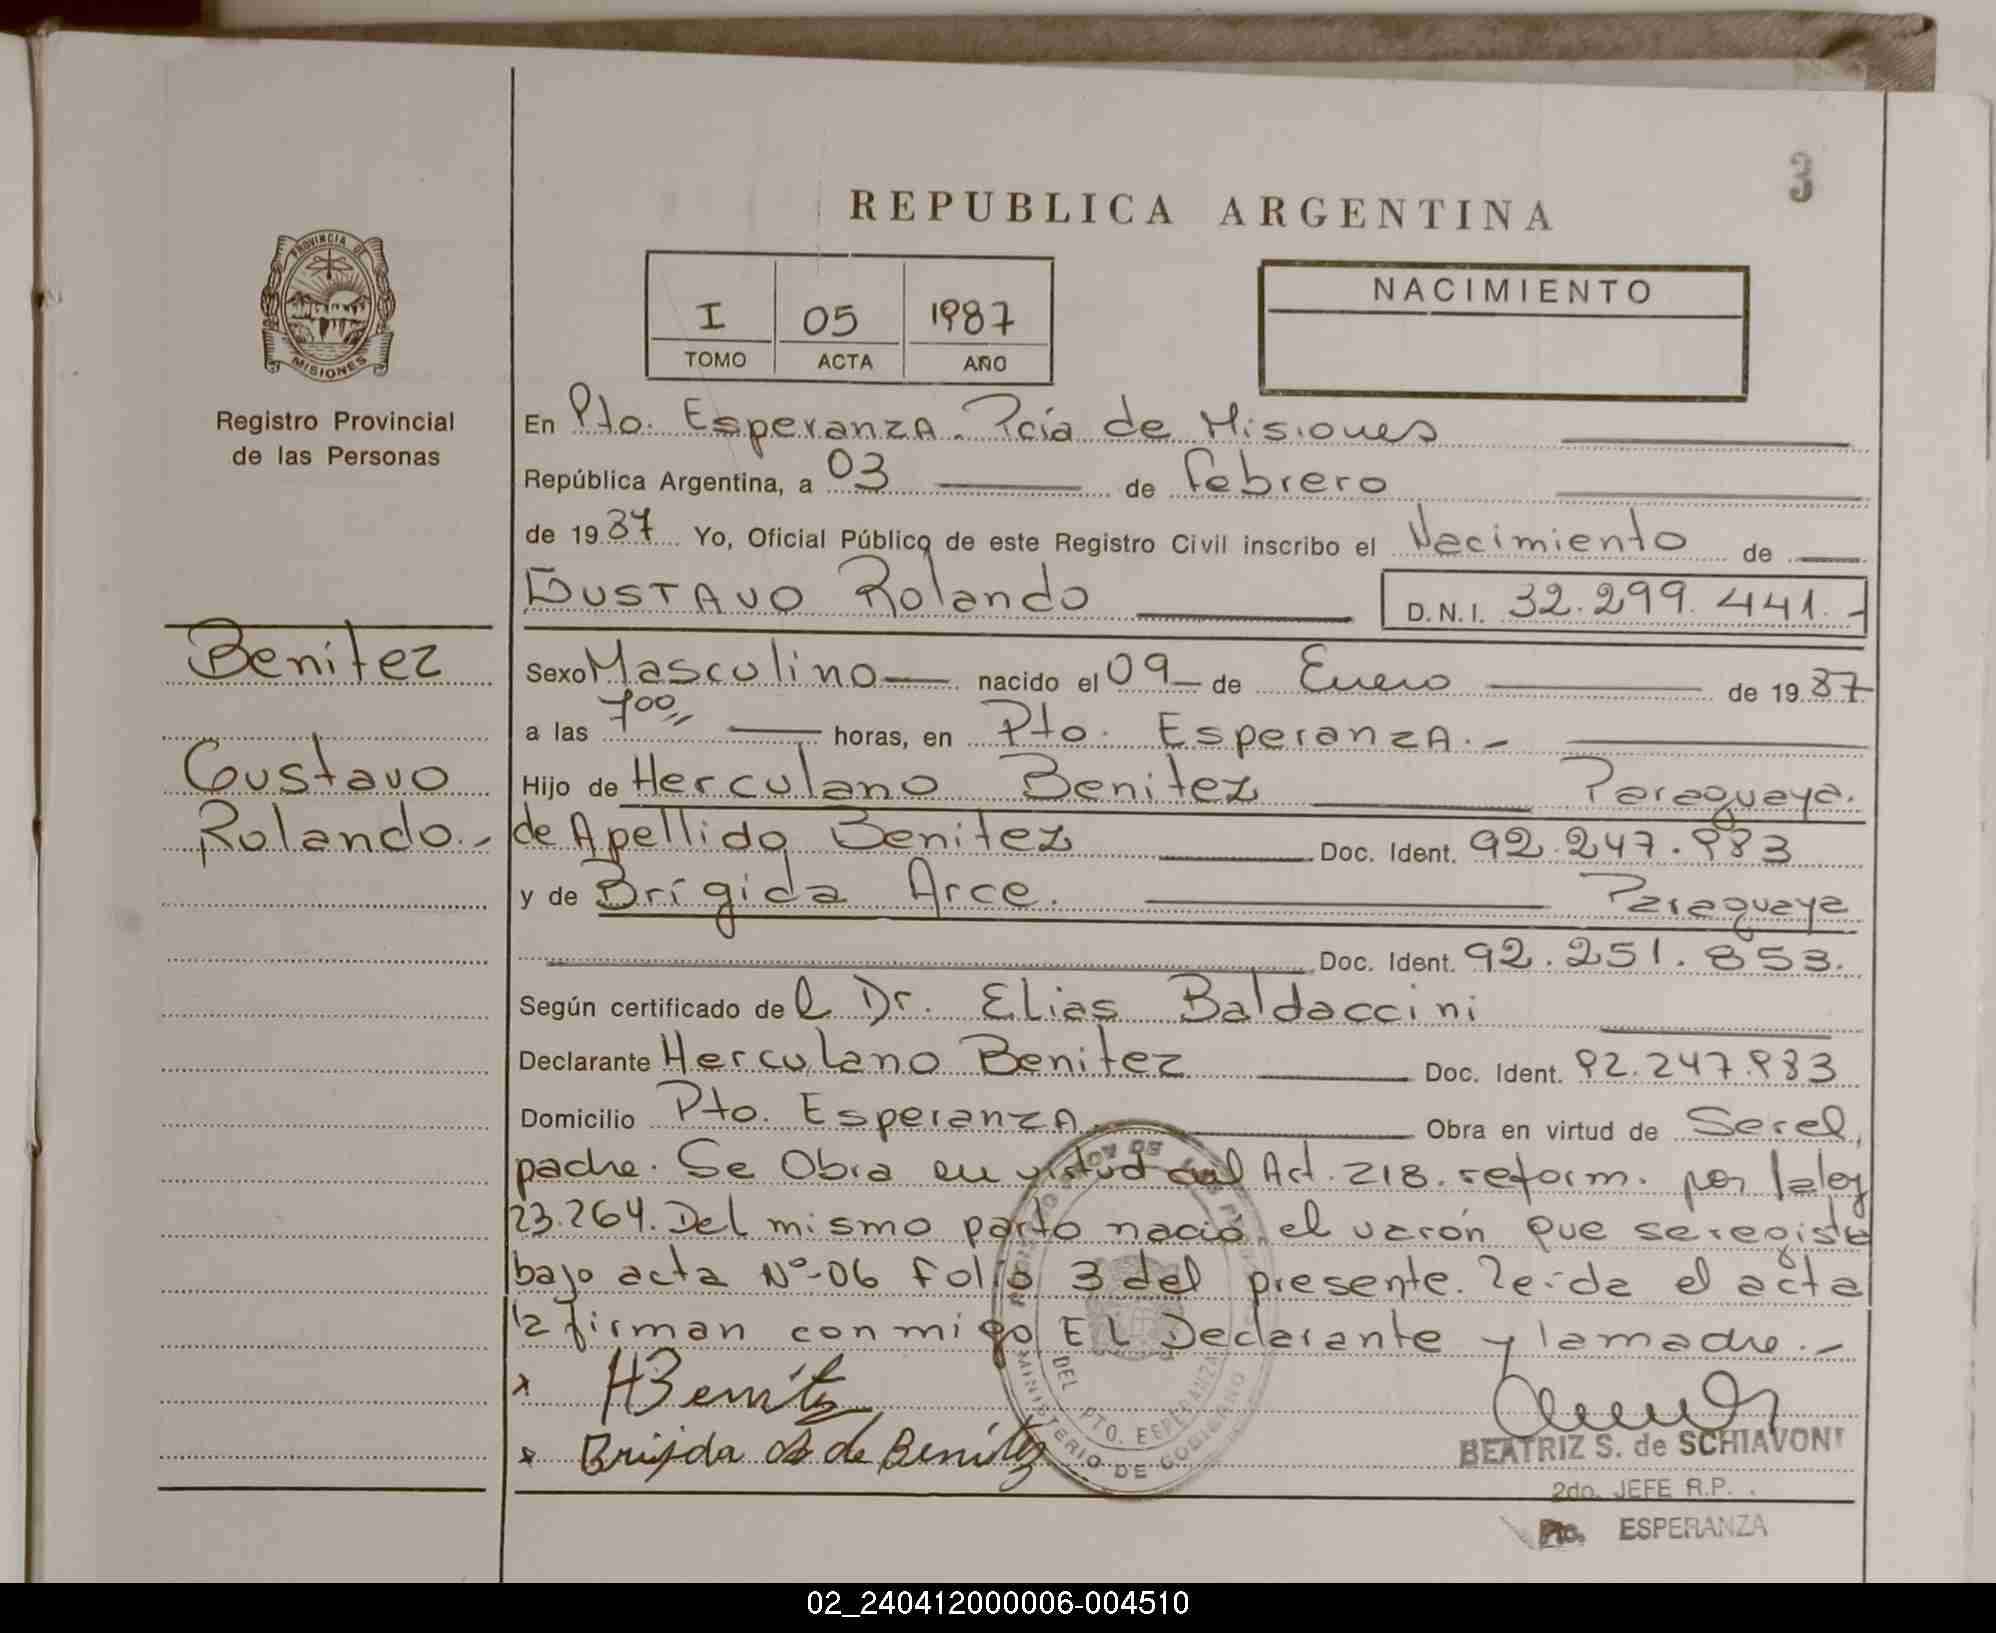 3
REPUBLICA ARGENTINA
PROVINCIA DE
MISIONES
Registro Provincial
de las Personas
I 05 1987
TOMO ACTA AÑO
NACIMIENTO
En Pto. Esperanza. Pcia de Misiones
República Argentina, a 03 de febrero
de 19 87 Yo, Oficial Público de este Registro Civil inscribo el Nacimiento de
GUSTAVO Rolando D.N.I. 32.299.441.-
Benitez
Gustavo
Rolando.-
Sexo Masculino nacido el 09 de Enero de 19 87
a las 700 horas, en Pto. Esperanza.-
Hijo de Herculano Benitez Paraguaya.
de Apellido Benitez Doc. Ident. 92.247.983
y de Brígida Arce. Paraguaya
Doc. Ident. 92.251.853.
Según certificado de l Dr. Elias Baldaccini
Declarante Herculano Benitez Doc. Ident. 92.247.983
Domicilio Pto. Esperanza Obra en virtud de Ser el
padre. Se Obra en virtud del Art. 218. reform. por la ley
23.264. Del mismo parto nació el varón que se registra
bajo acta Nº-06 folio 3 del presente. Leída el acta
la firman conmigo EL Declarante y la madre.-
x HBenitez
x Brijida de Benítez
DEL PTO. ESPERANZA
MINISTERIO DE GOBIERNO
BEATRIZ S. de SCHIAVONI
2do. JEFE R.P.
Pto. ESPERANZA
02_240412000006-004510